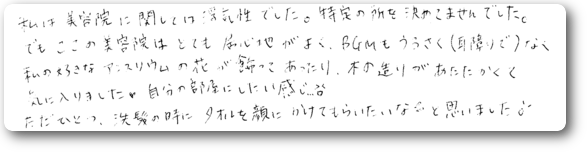 私は美容院に関しては浮気性でした。特定の所を決めてませんでした。
でもここの美容院はとても居心地がよく、BGMもうるさく(耳障りで)なく
私の好きなアンスリウムの花が飾ってあったり、木の造りがあたたかくて
気に入りました♥ 自分の部屋にしたい感じ...
ただひとつ、洗髪の時にタオルを顔にかけてもらいたいな と思いました